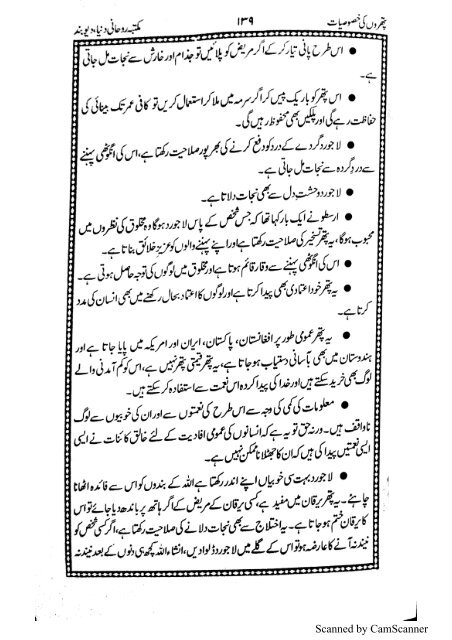 پتھروں کی خصوصیات ۱۳۹ مکتبہ روحانی دنیا، دیوبند
● اس طرح پانی تیار کر کے اگر مریض کو پلائیں تو جذام اور خارش سے نجات مل جاتی
ہے۔
● اس پتھر کو باریک پیس کر اگر سرمہ میں ملا کر استعمال کریں تو کافی عمر تک بینائی کی
حفاظت رہے گی اور پلکیں بھی محفوظ رہیں گی۔
● لاجورد گردے کے درد کو دفع کرنے کی بھرپور صلاحیت رکھتا ہے، اس کی انگوٹھی پہننے
سے درد گردہ سے نجات مل جاتی ہے۔
● لاجورد وحشت دل سے بھی نجات دلاتا ہے۔
● ارسطو نے ایک بار کہا تھا کہ جس شخص کے پاس لاجورد ہوگا وہ مخلوق کی نظروں میں
محبوب ہوگا، یہ پتھر تسخیر کی صلاحیت رکھتا ہے اور اپنے پہننے والوں کو عزیز خلائق بناتا ہے۔
● اس کی انگوٹھی پہننے سے وقار قائم ہوتا ہے اور مخلوق میں لوگوں کی توجہ حاصل ہوتی ہے۔
● یہ پتھر خود اعتمادی بھی پیدا کرتا ہے اور لوگوں کا اعتماد بحال رکھنے میں بھی انسان کی مدد
کرتا ہے۔
● یہ پتھر عمومی طور پر افغانستان، پاکستان، ایران اور امریکہ میں پایا جاتا ہے اور
ہندوستان میں بھی بآسانی دستیاب ہو جاتا ہے، یہ پتھر قیمتی پتھر نہیں ہے، اس کو کم آمدنی والے
لوگ بھی خرید سکتے ہیں اور خدا کی پیدا کردہ اس نعمت سے استفادہ کر سکتے ہیں۔
● معلومات کی کمی کی وجہ سے اس طرح کی نعمتوں سے اور ان کی خوبیوں سے لوگ
ناواقف ہیں۔ ورنہ حق تو یہ ہے کہ انسانوں کی عمومی افادیت کے لئے خالق کائنات نے ایسی
ایسی نعمتیں پیدا کی ہیں کہ ان کا جھٹلانا ممکن نہیں ہے۔
● لاجورد بہت سی خوبیاں اپنے اندر رکھتا ہے اللہ کے بندوں کو اس سے فائدہ اٹھانا
چاہئے۔ یہ پتھر یرقان میں مفید ہے، کسی یرقان کے مریض کے اگر ہاتھ پر باندھ دیا جائے تو اس
کا یرقان ختم ہو جاتا ہے۔ یہ اختلاج سے بھی نجات دلانے کی صلاحیت رکھتا ہے، اگر کسی شخص کو
نیند نہ آنے کا عارضہ ہو تو اس کے گلے میں لاجورد ڈلوا دیں، انشاء اللہ کچھ ہی دنوں کے بعد نیند نہ
Scanned by CamScanner